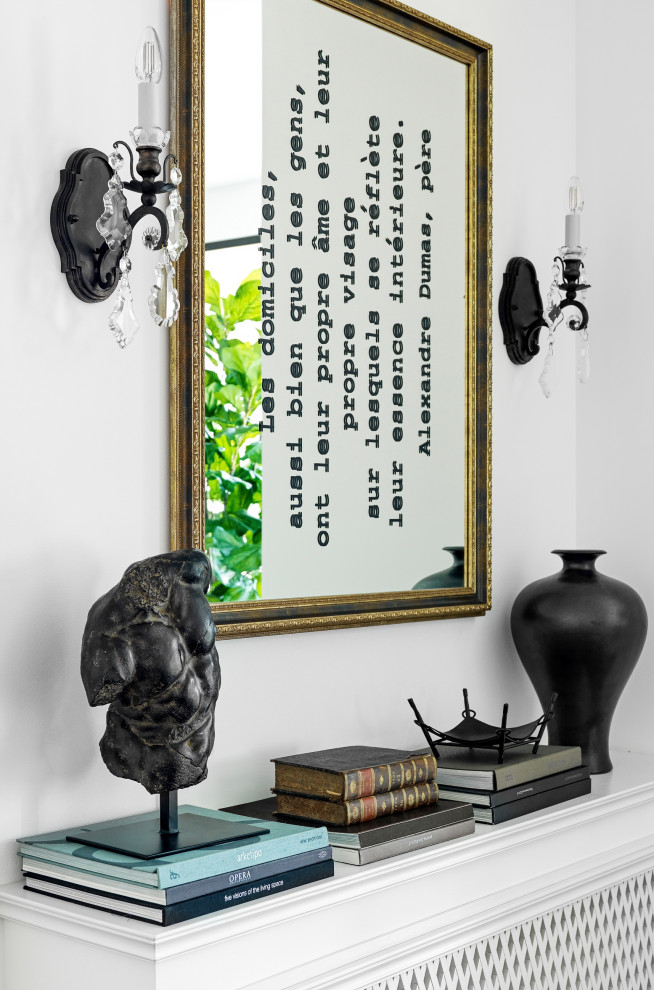 Les domiciles,
aussi bien que les gens,
ont leur propre âme et leur
propre visage
sur lesquels se réflète
leur essence intérieure.
Alexandre Dumas, père
arketipo
OPERA
five visions of the living space